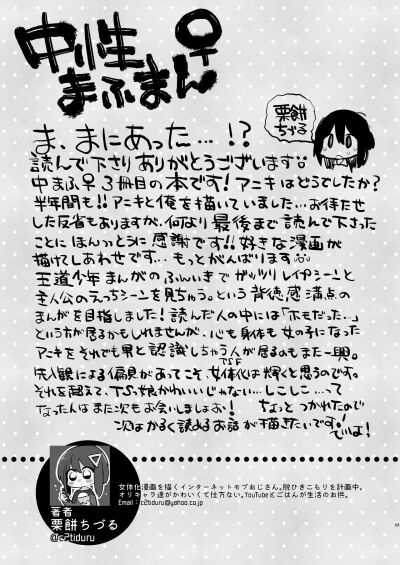 中性
まふまん♀
栗餅
ちづる
ま、まにあった…!?
読んで下さりありがとうございます。
中まふ♀3冊目の本です!アニキはどうでしたか?
半年間も!!アニキと俺を描いていました…お待たせ
した反省もありますが、何より最後まで読んで下さった
ことにほんっとうに感謝です!!好きな漫画が
描けてしあわせです…もっとがんばります
王道少年まんがのふんいきでガッツリレイプシーンと
主人公のえっちシーンを見ちゃう。という背徳感満点の
まんがを目指しました!読んだ人の中には「ホモだった…」
という方が居るかもしれませんが、心も身体も女の子になった
アニキをそれでも男と認識しちゃう人が居るのもまた一興。
先入観による偏見があってこそ、女体化(TSF)は輝くと思うのです。
それを超えて、TSっ娘かわいいじゃない…しこしこ…って
なった人はまた次もお会いしましょお! ちょっとつかれたので
次はかるく読めるお話が描きたいです!
でいよ!
著者
栗餅ちづる
@c2tiduru
女体化漫画を描くインターネットモブおじさん。脱ひきこもりを計画中。
オリキャラ達がかわいくて仕方ない。YouTubeとごはんが生活のお供。
Email:c2tiduru@yahoo.co.jp